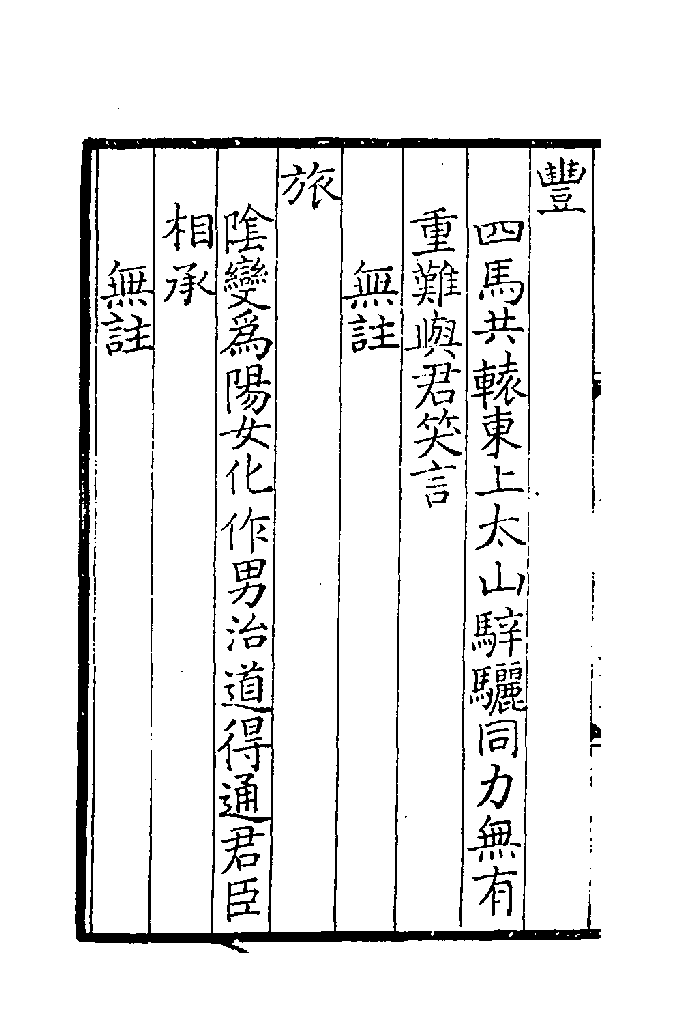 豐
四馬共轅東上太山騂驪同力無有
重難與君笑言
無註
旅
陰變爲陽女化作男治道得通君臣
相承
無註